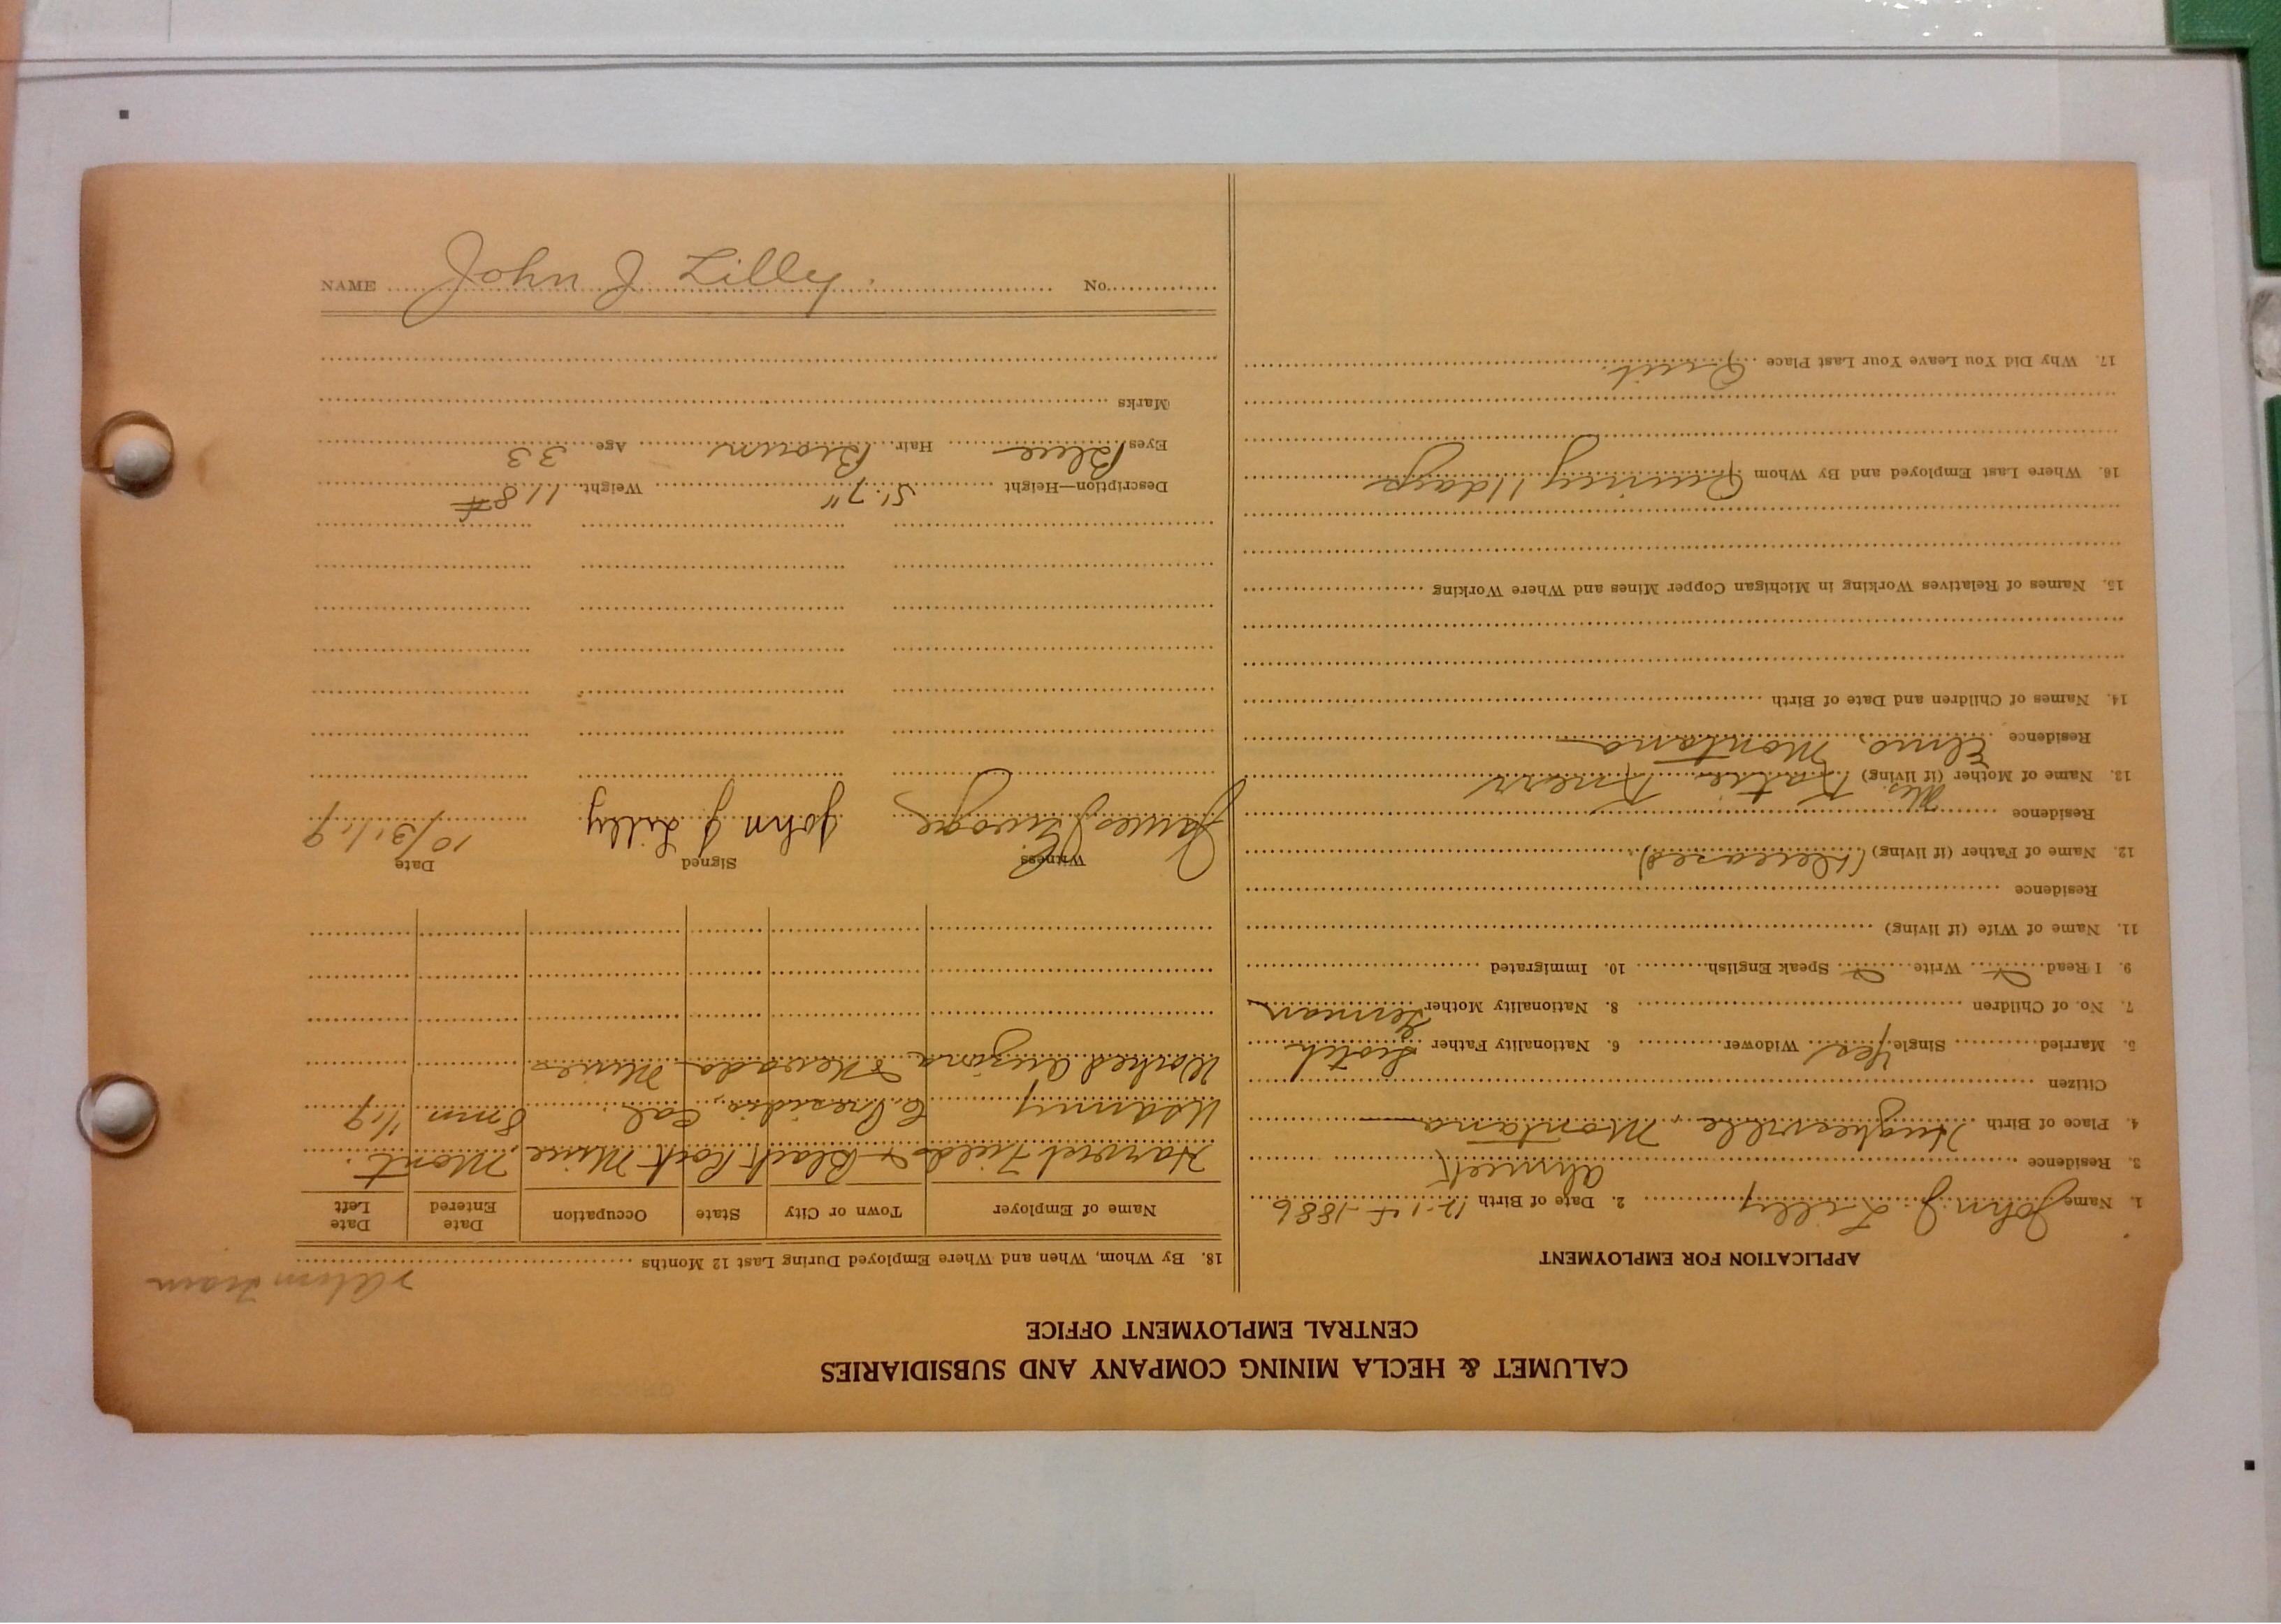 CALUMET & HECLA MINING COMPANY AND SUBSIDIARIES
CENTRAL EMPLOYMENT OFFICE
APPLICATION FOR EMPLOYMENT
1. Name John J. Lilly 2. Date of Birth 12-15-1886
3. Residence Ahmeek
4. Place of Birth Hughesville, Montana
Citizen
5. Married Single Yes Widower 6. Nationality Father Scotch
7. No. of Children 8. Nationality Mother German
9. I Read Write Speak English 10. Immigrated
11. Name of Wife (if living)
Residence
12. Name of Father (if living) (Deceased)
Residence
13. Name of Mother (if living) Mrs. Katie
Residence Elmo, Montana
14. Names of Children and Date of Birth
15. Names of Relatives Working in Michigan Copper Mines and Where Working
16. Where Last Employed and By Whom Quincy 11 days
17. Why Did You Leave Your Last Place Quit.
18. By Whom, When and Where Employed During Last 12 Months
Name of Employer Town or City State Occupation Date Entered Date Left
Harvest Fields & Black Rock Mine, Mont.
US Army Presidio, Cal. 8 mn 1/19
Worked Arizona & Nevada Mines
Witness Signed Date
James John J Lilly 10/31/19
Description—Height 5'.7" Weight 118#
Eyes Blue Hair Brown Age 33
Marks
NAME John J. Lilly. No.